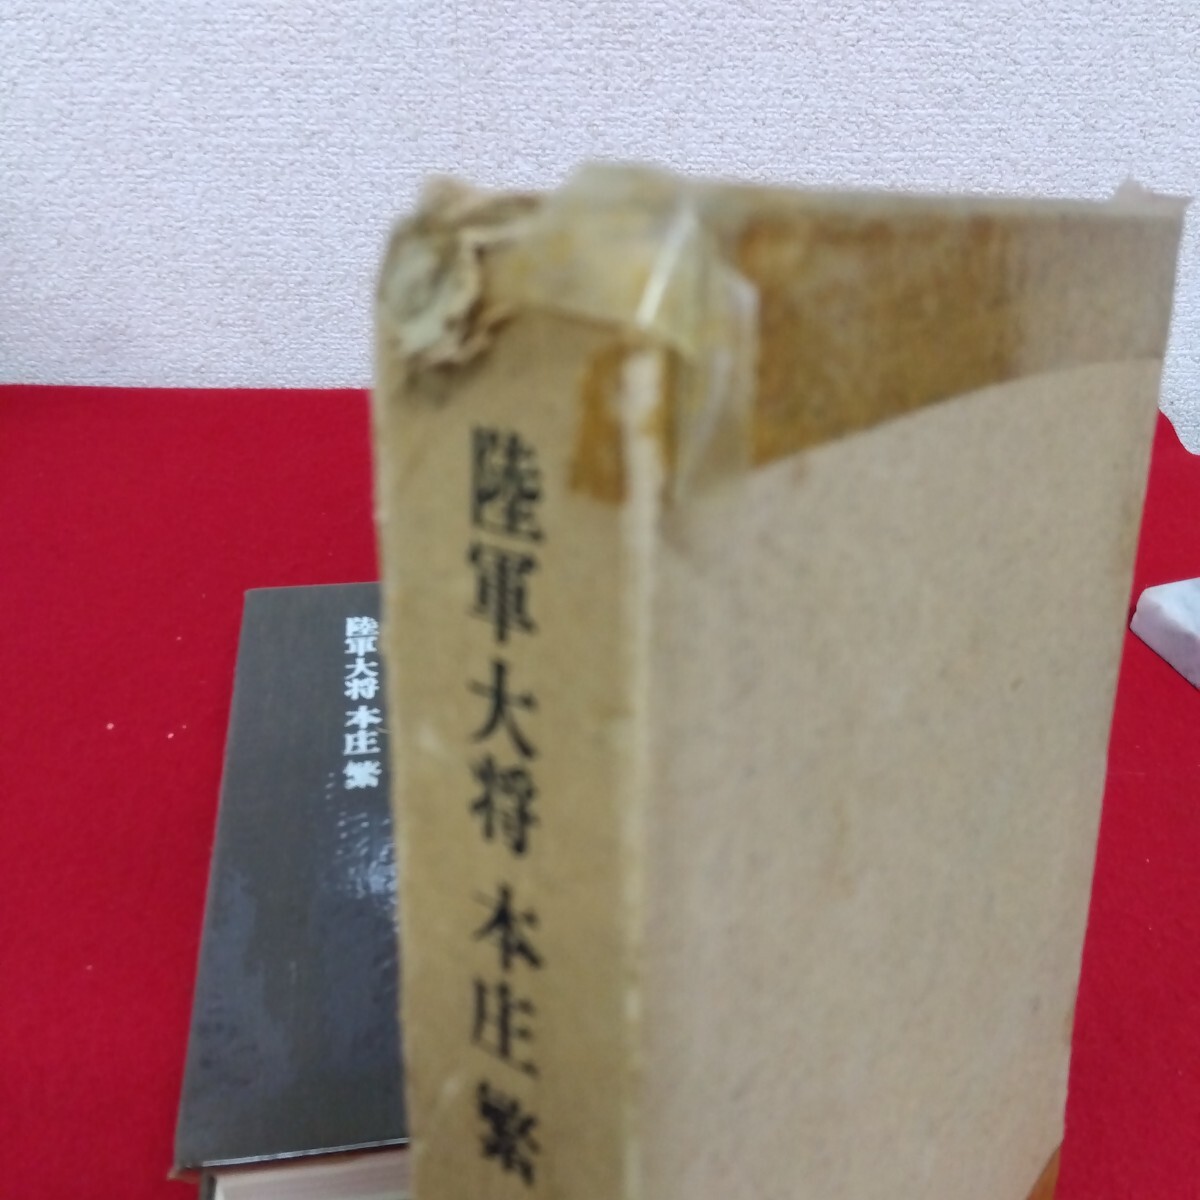 陸軍大将 本庄 繁
陸軍大将 本庄 繁